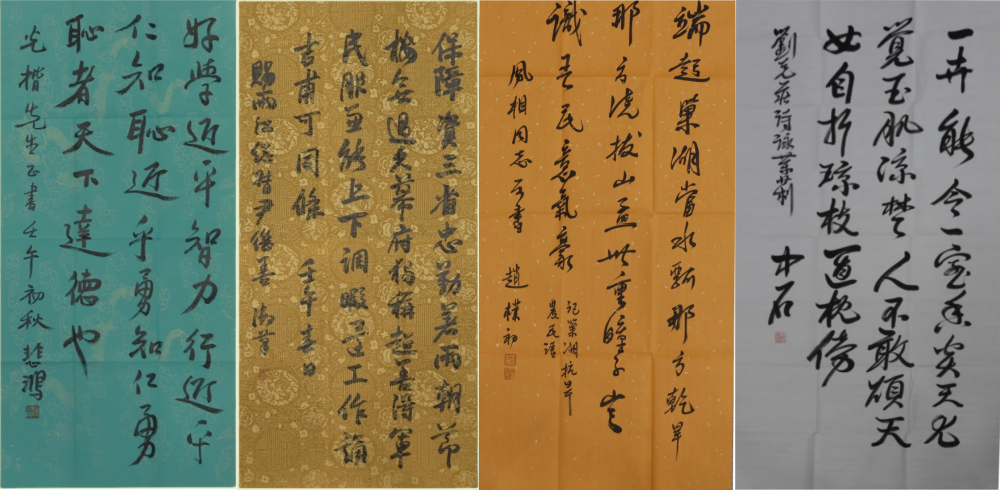 好學近乎智力行近乎
仁知恥近乎勇知仁勇
恥者天下達德也
光楷先生正書 壬午初秋 悲鴻
保障資三省忠勤著兩朝節
樓無過大幕府獨稱超善得軍
民服兼能上下調暇還工作誦
吉甫可同條 壬午春日
賜兩江總督尹繼善 御筆
端起巢湖當水瓢那方乾旱
那方澆拔山蓋世重瞳子豈
識吾民意氣豪
記巢湖抗旱
農民語
風相同志 書 趙樸初
一卉能令一室香炎天尤
覺玉肌涼埜人不敢煩天
女自折瓊枝置枕傍
劉克莊詩詠茉莉
中石